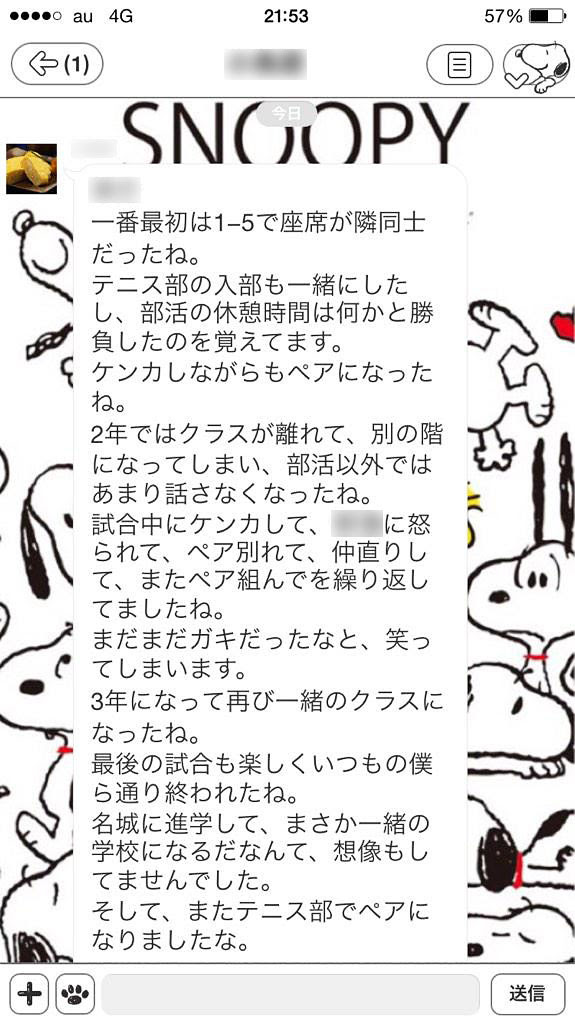 au 4G 21:53 57%
(1)
今日
SNOOPY
一番最初は1–5で座席が隣同士
だったね。
テニス部の入部も一緒にした
し、部活の休憩時間は何かと勝
負したのを覚えてます。
ケンカしながらもペアになった
ね。
2年ではクラスが離れて、別の階
になってしまい、部活以外では
あまり話さなくなったね。
試合中にケンカして、に怒
られて、ペア別れて、仲直りし
て、またペア組んでを繰り返し
てましたね。
まだまだガキだったなと、笑っ
てしまいます。
3年になって再び一緒のクラスに
なったね。
最後の試合も楽しくいつもの僕
ら通り終われたね。
名城に進学して、まさか一緒の
学校になるだなんて、想像もし
てませんでした。
そして、またテニス部でペアに
なりましたな。
送信